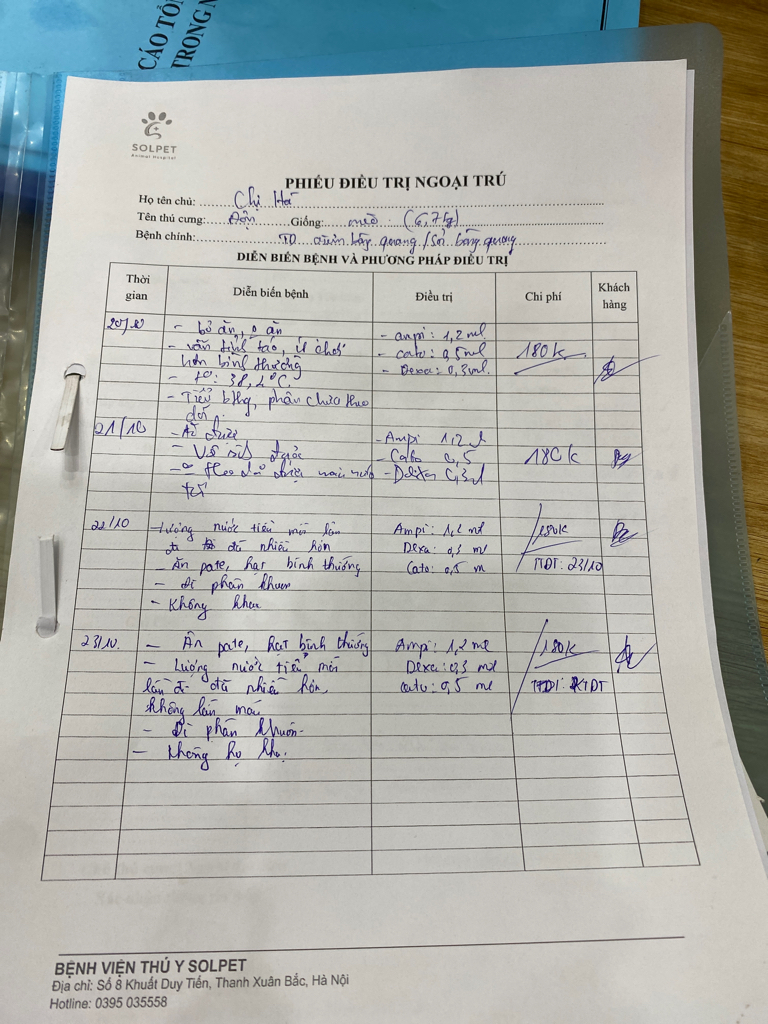 CÁO TỔ
TRONG N
SOLPET
Animal Hospital
PHIẾU ĐIỀU TRỊ NGOẠI TRÚ
Họ tên chủ: Chị Hà
Tên thú cưng: Độn Giống: mèo (6,7kg)
Bệnh chính: TD viêm bàng quang / Sỏi bàng quang
DIỄN BIẾN BỆNH VÀ PHƯƠNG PHÁP ĐIỀU TRỊ
Thời gian Diễn biến bệnh Điều trị Chi phí Khách hàng
20/10
- bỏ ăn, o ăn
- vẫn tỉnh táo, ít chơi
hơn bình thường
- t°: 38,2°C.
- Tiểu bthg, phân chưa theo
dõi.
- ampi: 1,2 ml
- cato: 0,5ml
- Dexa: 0,3ml.
180k
21/10
- Ăn được
- Vệ sinh được
- theo dõi được
- Ampi 1,2
- Cato 0,5
180k
22/10
- Lượng nước tiểu mỗi lần
đi đã nhiều hơn
- Ăn pate, hạt bình thường
- đi phân khuôn
- Không
Ampi: 1,2 ml
Dexa: 0,3 ml
Cato: 0,5 m
180k
TDT: 23/10
23/10.
- Ăn pate, hạt bình thường
- Lượng nước tiểu mỗi
lần đi đã nhiều hơn,
không lẫn máu
- Đi phân khuôn.
- Không ho
Ampi: 1,2 ml
Dexa: 0,3 ml
cato: 0,5 ml
180k
KTDT
BỆNH VIỆN THÚ Y SOLPET
Địa chỉ: Số 8 Khuất Duy Tiến, Thanh Xuân Bắc, Hà Nội
Hotline: 0395 035558